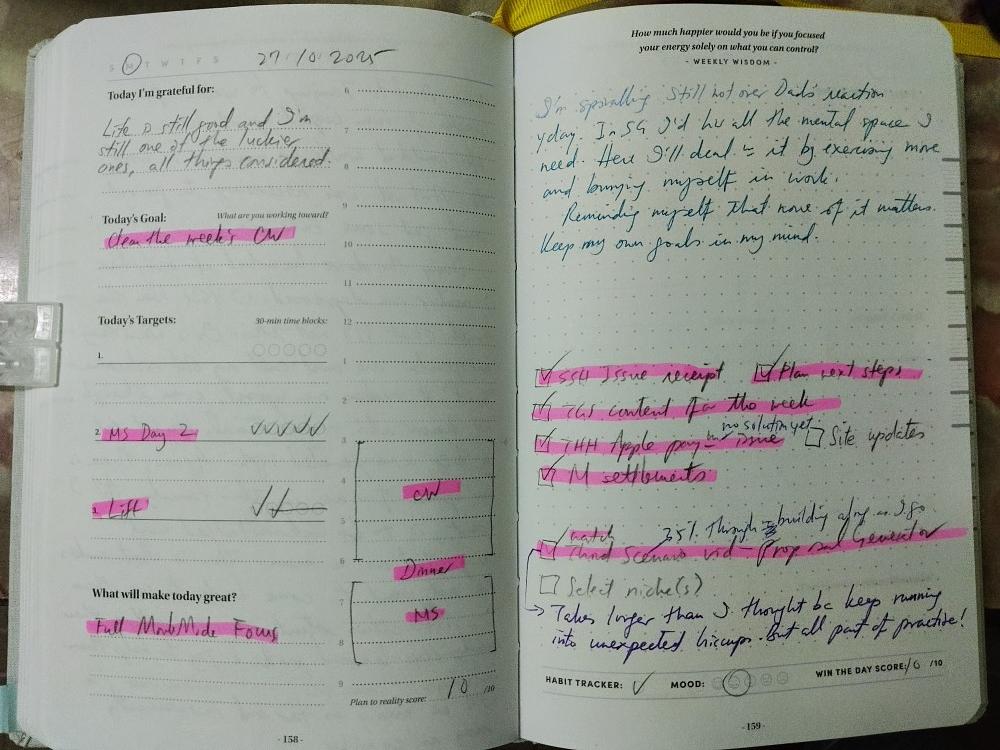 S M T W T F S 27/10/2025
Today I'm grateful for:
Life is still good and I'm
still one of the luckier
ones, all things considered.
Today's Goal: What are you working toward?
Clear the week's CW
Today's Targets: 30-min time blocks:
1.
2. MS Day 2
3. Lift
What will make today great?
Full MonkMode Focus
6
7
8
9
10
11
12
1
2
3
4 CW
5
6
Dinner
7 MS
8
9
Plan to reality score: 10 /10
- 158 -
How much happier would you be if you focused
your energy solely on what you can control?
- WEEKLY WISDOM -
I'm spiralling. Still not over Dad's reaction
yday. In SG I'd hv all the mental space I
need. Here I'll deal w it by exercising more
and burying myself in work.
Reminding myself that none of it matters.
Keep my own goals in my mind.
SSH Issue receipt Plan next steps
TGS content for the week
no solution yet
THH Apple pay issue Site updates
M settlements
35% through building along as I go
watch
Scenario vid - Proposal Generator
Select niche(s)
→ Takes longer than I thought bc keep running
into unexpected hiccups. But all part of practice!
HABIT TRACKER: MOOD: WIN THE DAY SCORE: 10 /10
- 159 -